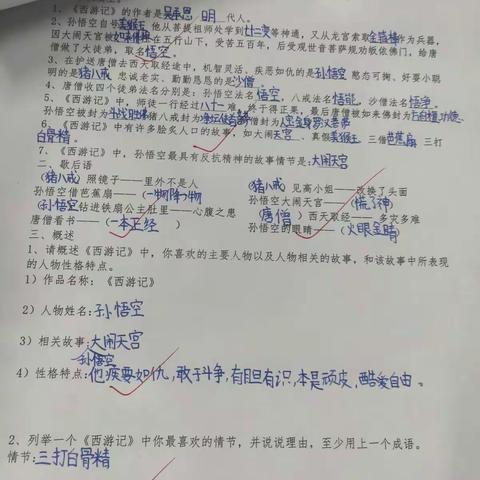 1、《西游记》的作者是吴承恩,明代人。
2、孙悟空自号美猴王,他从菩提祖师处学到七十二变等神通,又从龙宫索取金箍棒作为兵器,
因大闹天宫被如来佛祖压在五行山下,受苦五百年,后受观世音菩萨规劝皈依佛门,给唐
僧做了大徒弟,取名悟空。
3、在护送唐僧去西天取经途中,机智灵活、疾恶如仇的是孙悟空 憨态可掬、好耍小聪
明的是猪八戒 忠诚老实、勤勤恳恳的是沙僧
4、唐僧收四个徒弟法名分别是:孙悟空法名悟空,八戒法名悟能,沙僧法名悟净。
5、《西游记》中,师徒一行经过八十一难,终于得正果,最后唐僧被如来佛封为旃檀功德
孙悟空被封为斗战胜佛猪八戒封为净坛使者沙僧封为金身罗汉
6、《西游记》中有许多脍炙人口的故事,如大闹天宫、真假美猴王 三借芭蕉扇 三打
白骨精。
7、《西游记》中,孙悟空最具有反抗精神的故事情节是:大闹天宫
二、歇后语
(猪八戒)照镜子——里外不是人 (猪八戒)见高小姐——改换了头面
孙悟空借芭蕉扇——(一物降一物) 孙悟空大闹天宫——(慌了神)
(孙悟空)钻进铁扇公主肚里——心腹之患 (唐僧)西天取经——多灾多难
唐僧看书——(一本正经) 孙悟空的眼睛——(火眼金睛)
三、概述
1、请概述《西游记》中,你喜欢的主要人物以及人物相关的故事,和该故事中所表现
的人物性格特点。
1)作品名称:《西游记》
2)人物姓名:孙悟空
3)相关故事:大闹天宫
孙悟空
4)性格特点:他疾恶如仇,敢于斗争,有胆有识,本是顽皮,酷爱自由。
2、列举一个《西游记》中你最喜欢的情节,并说说理由,至少用上一个成语。
情节:三打白骨精